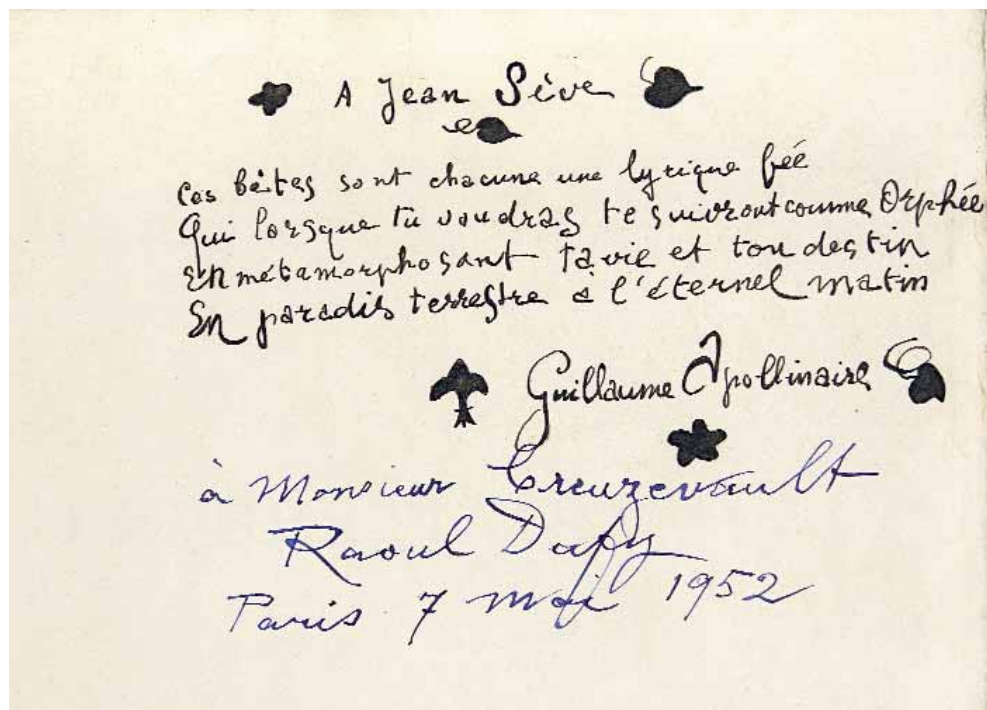 A Jean Sève
Ces bêtes sont chacune une lyrique fée
Qui lorsque tu voudras te suivront comme Orphée
En métamorphosant ta vie et ton destin
En paradis terrestre à l'éternel matin
Guillaume Apollinaire
à Monsieur Creuzevault
Raoul Dufy
Paris 7 mai 1952